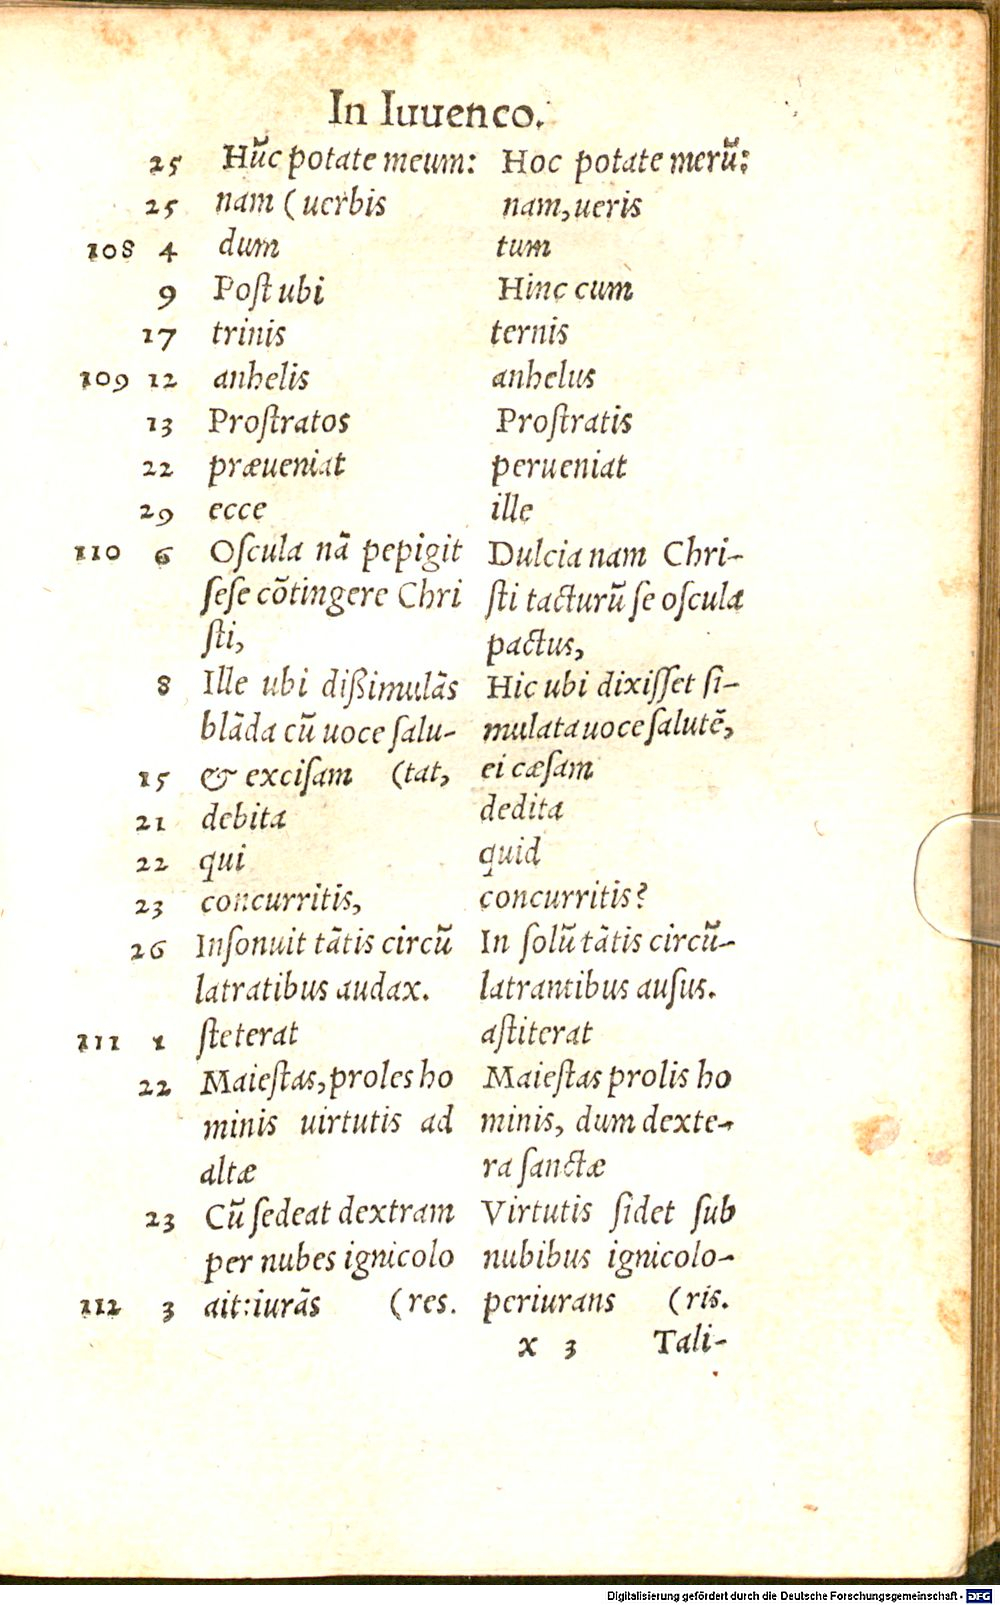 In Iuuenco.
25 Hũc potate meum: Hoc potate merũ:
25 nam (uerbis nam, ueris
108 4 dum tum
9 Poſt ubi Hinc cum
17 trinis ternis
109 12 anhelis anhelus
13 Proſtratos Proſtratis
22 præueniat perueniat
29 ecce ille
110 6 Oſcula nã pepigit Dulcia nam Chri-
ſeſe cõtingere Chri ſti tacturũ ſe oſcula
ſti, pactus,
8 Ille ubi dißimulãs Hic ubi dixiſſet ſi-
blãda cũ uoce ſalu- mulata uoce ſalutẽ,
15 & exciſam (tat, ei cæſam
21 debita dedita
22 qui quid
23 concurritis, concurritis?
26 Inſonuit tãtis circũ In ſolũ tãtis circũ-
latratibus audax. latrantibus auſus.
111 1 ſteterat aſtiterat
22 Maieſtas, proles ho Maieſtas prolis ho
minis uirtutis ad minis, dum dexte-
altæ ra ſanctæ
23 Cũ ſedeat dextram Virtutis ſidet ſub
per nubes ignicolo nubibus ignicolo-
112 3 ait: iurãs (res. periurans (ris.
x 3 Tali-
Digitalisierung gefördert durch die Deutsche Forschungsgemeinschaft - DFG